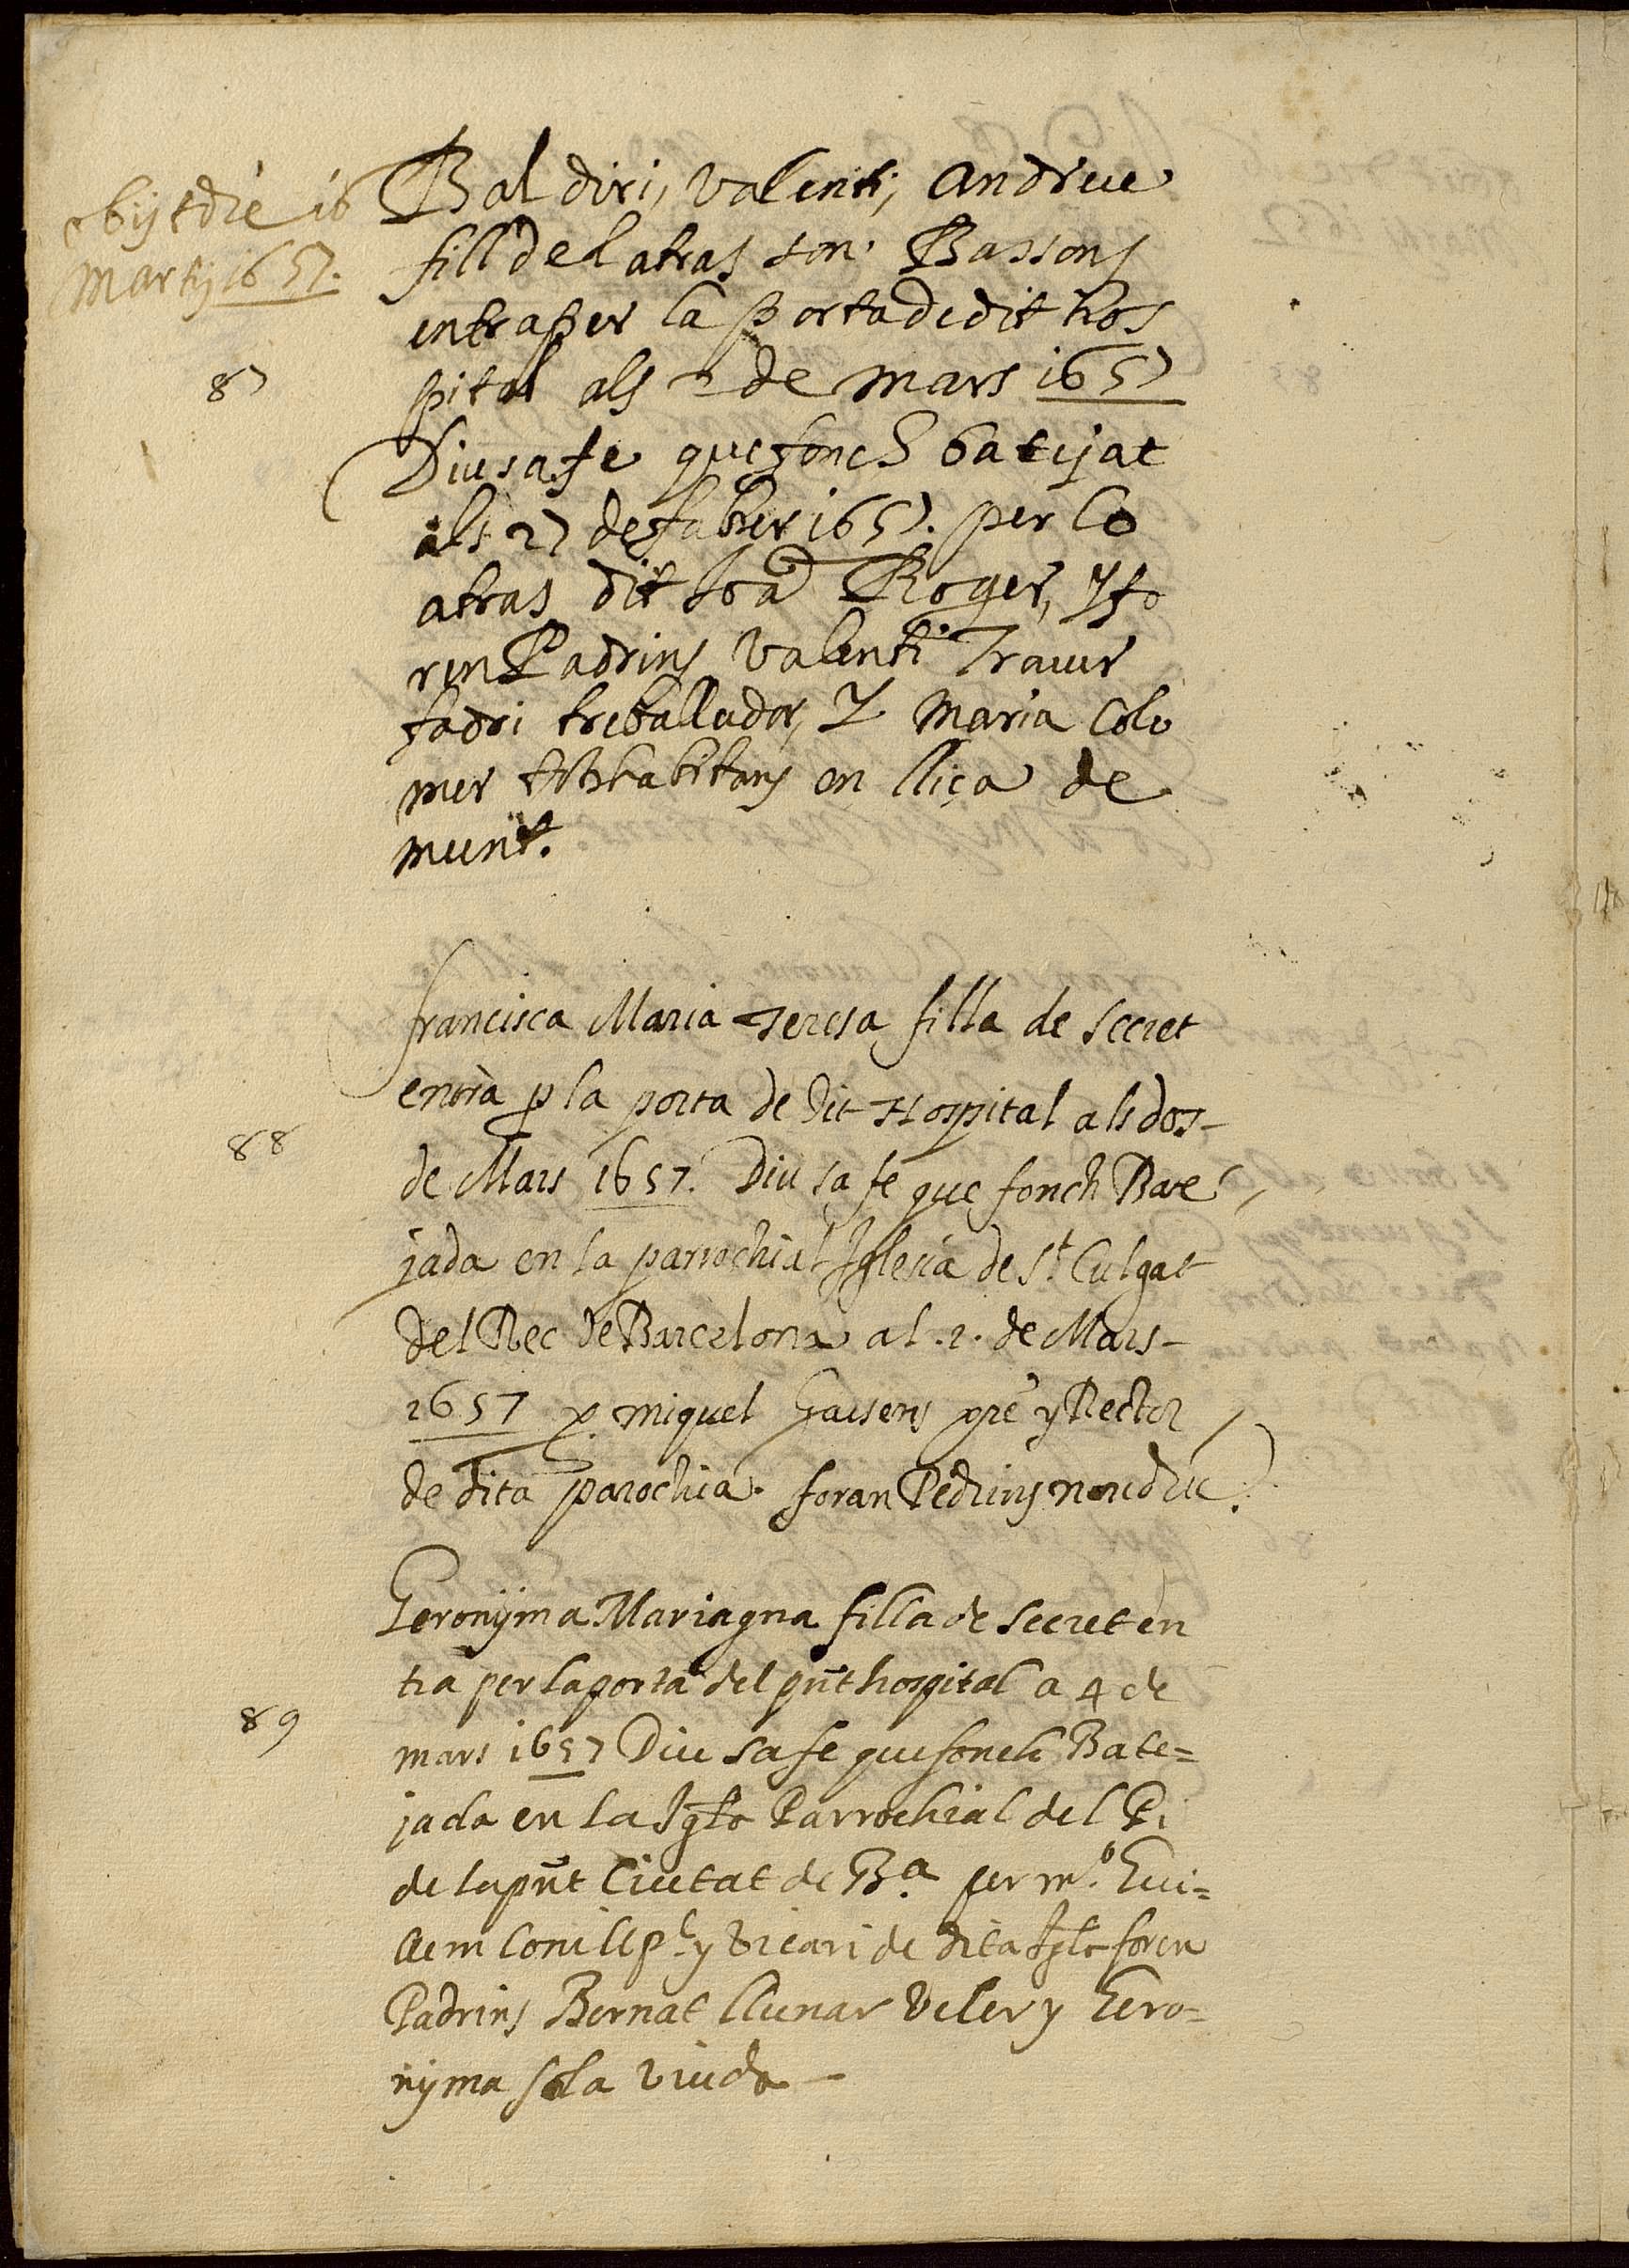 obijt die 16
Martij 1657.
Baldiri, Valenti, Andreu
fill del atras son Bassons
entra per la porta de dit hos
87
pital als 2 de Mars 1657
Diu sa fe que fonch batejat
als 27 de fabrer 1657. per lo
atras dit Joã Roger, Y fo
ren Padrins Valenti Traver
fadri treballador, Y Maria Colo
mer habitans en lliça de
munt.
francisca Maria Teresa filla de secret
entra p la porta de dit Hospital als dos
88
de Mars 1657. Diu sa fe que fonch Bate
jada en la parrochial Iglesia de St Culgat
del Rec de Barcelona al .2. de Mars
1657 p. Miquel Gaisens pre y Rector
de dita parochia. foran Pedrins no u diu.
Geronyma Mariagna filla de secret en
tra per la porta del pnt hospital a 4 de
89
mars 1657 Diu sa fe que fonch Bate=
jada en la Igla Parrochial del Pi
de la pnt Ciutat de Ba. per mo. Gui=
llem Conill y vicari de dita Igla foren
Padrins Bernat llunar veler y Gero=
nyma sola viuda